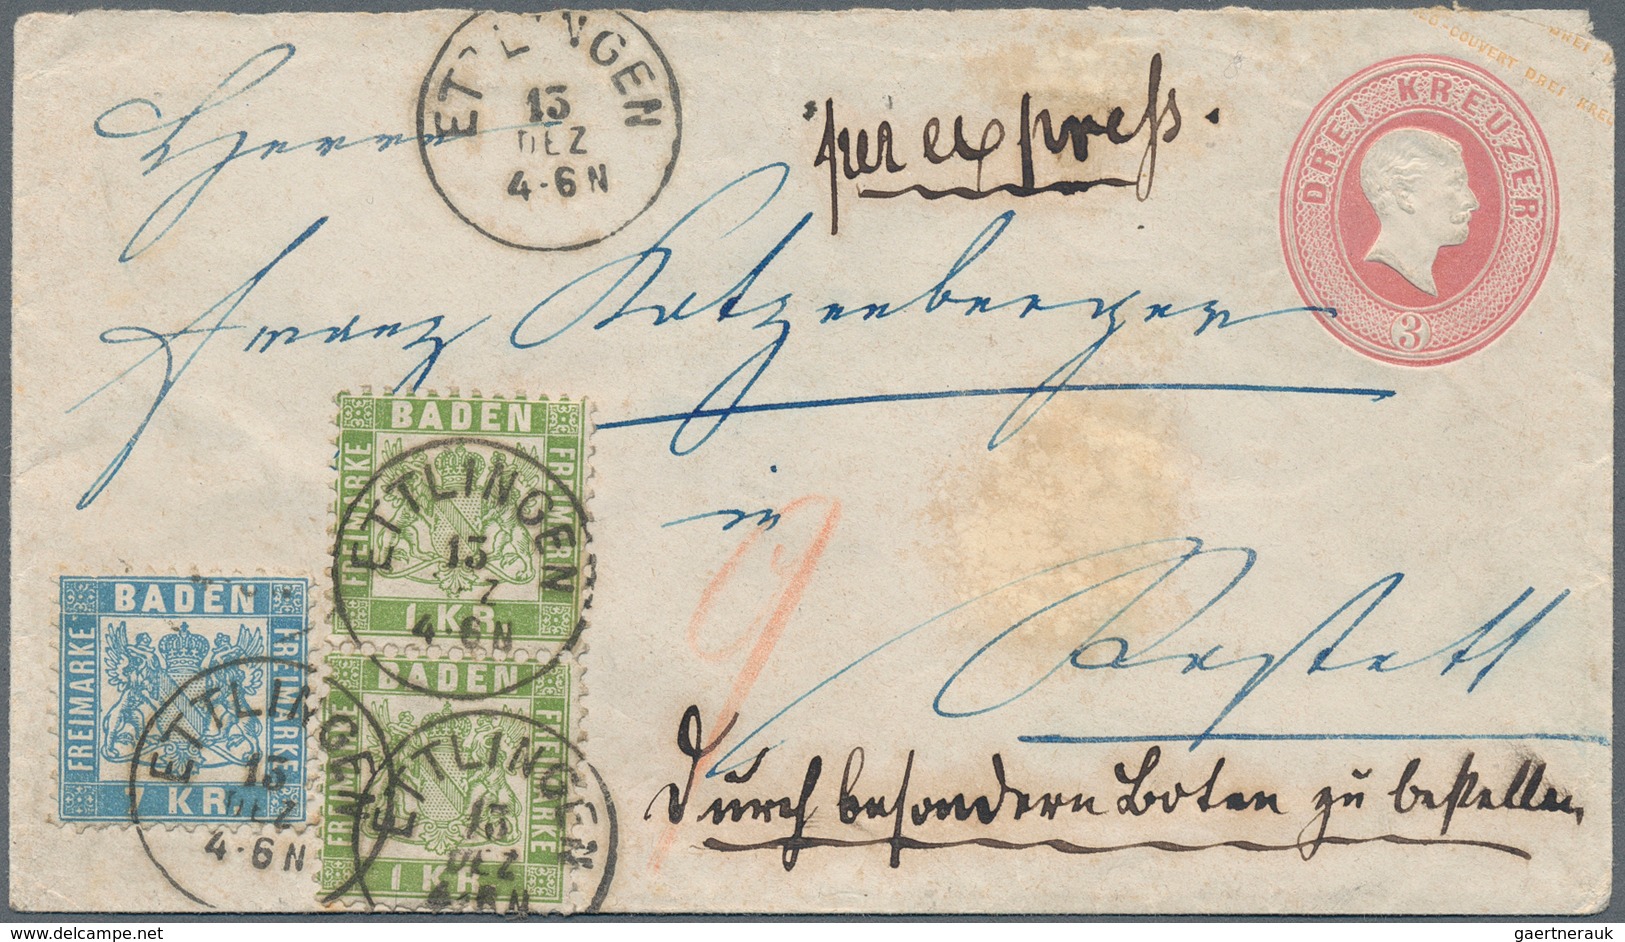 ETTLINGEN
13
DEZ
4-6N
per express.
COUVERT DREI KREU
DREI
DREI KREUZER
3
Herrn
Franz Katzenberger
in
Rastatt
9
Durch besondern Boten zu bestellen
BADEN
FREIMARKE
FREIMARKE
1 KR.
ETTLINGEN
13
DEZ
4-6N
BADEN
FREIMARKE
FREIMARKE
7 KR.
ETTLINGEN
13
DEZ
4-6N
BADEN
FREIMARKE
FREIMARKE
1 KR.
ETTLINGEN
13
DEZ
4-6N
delcampe.net
gaertnerauk